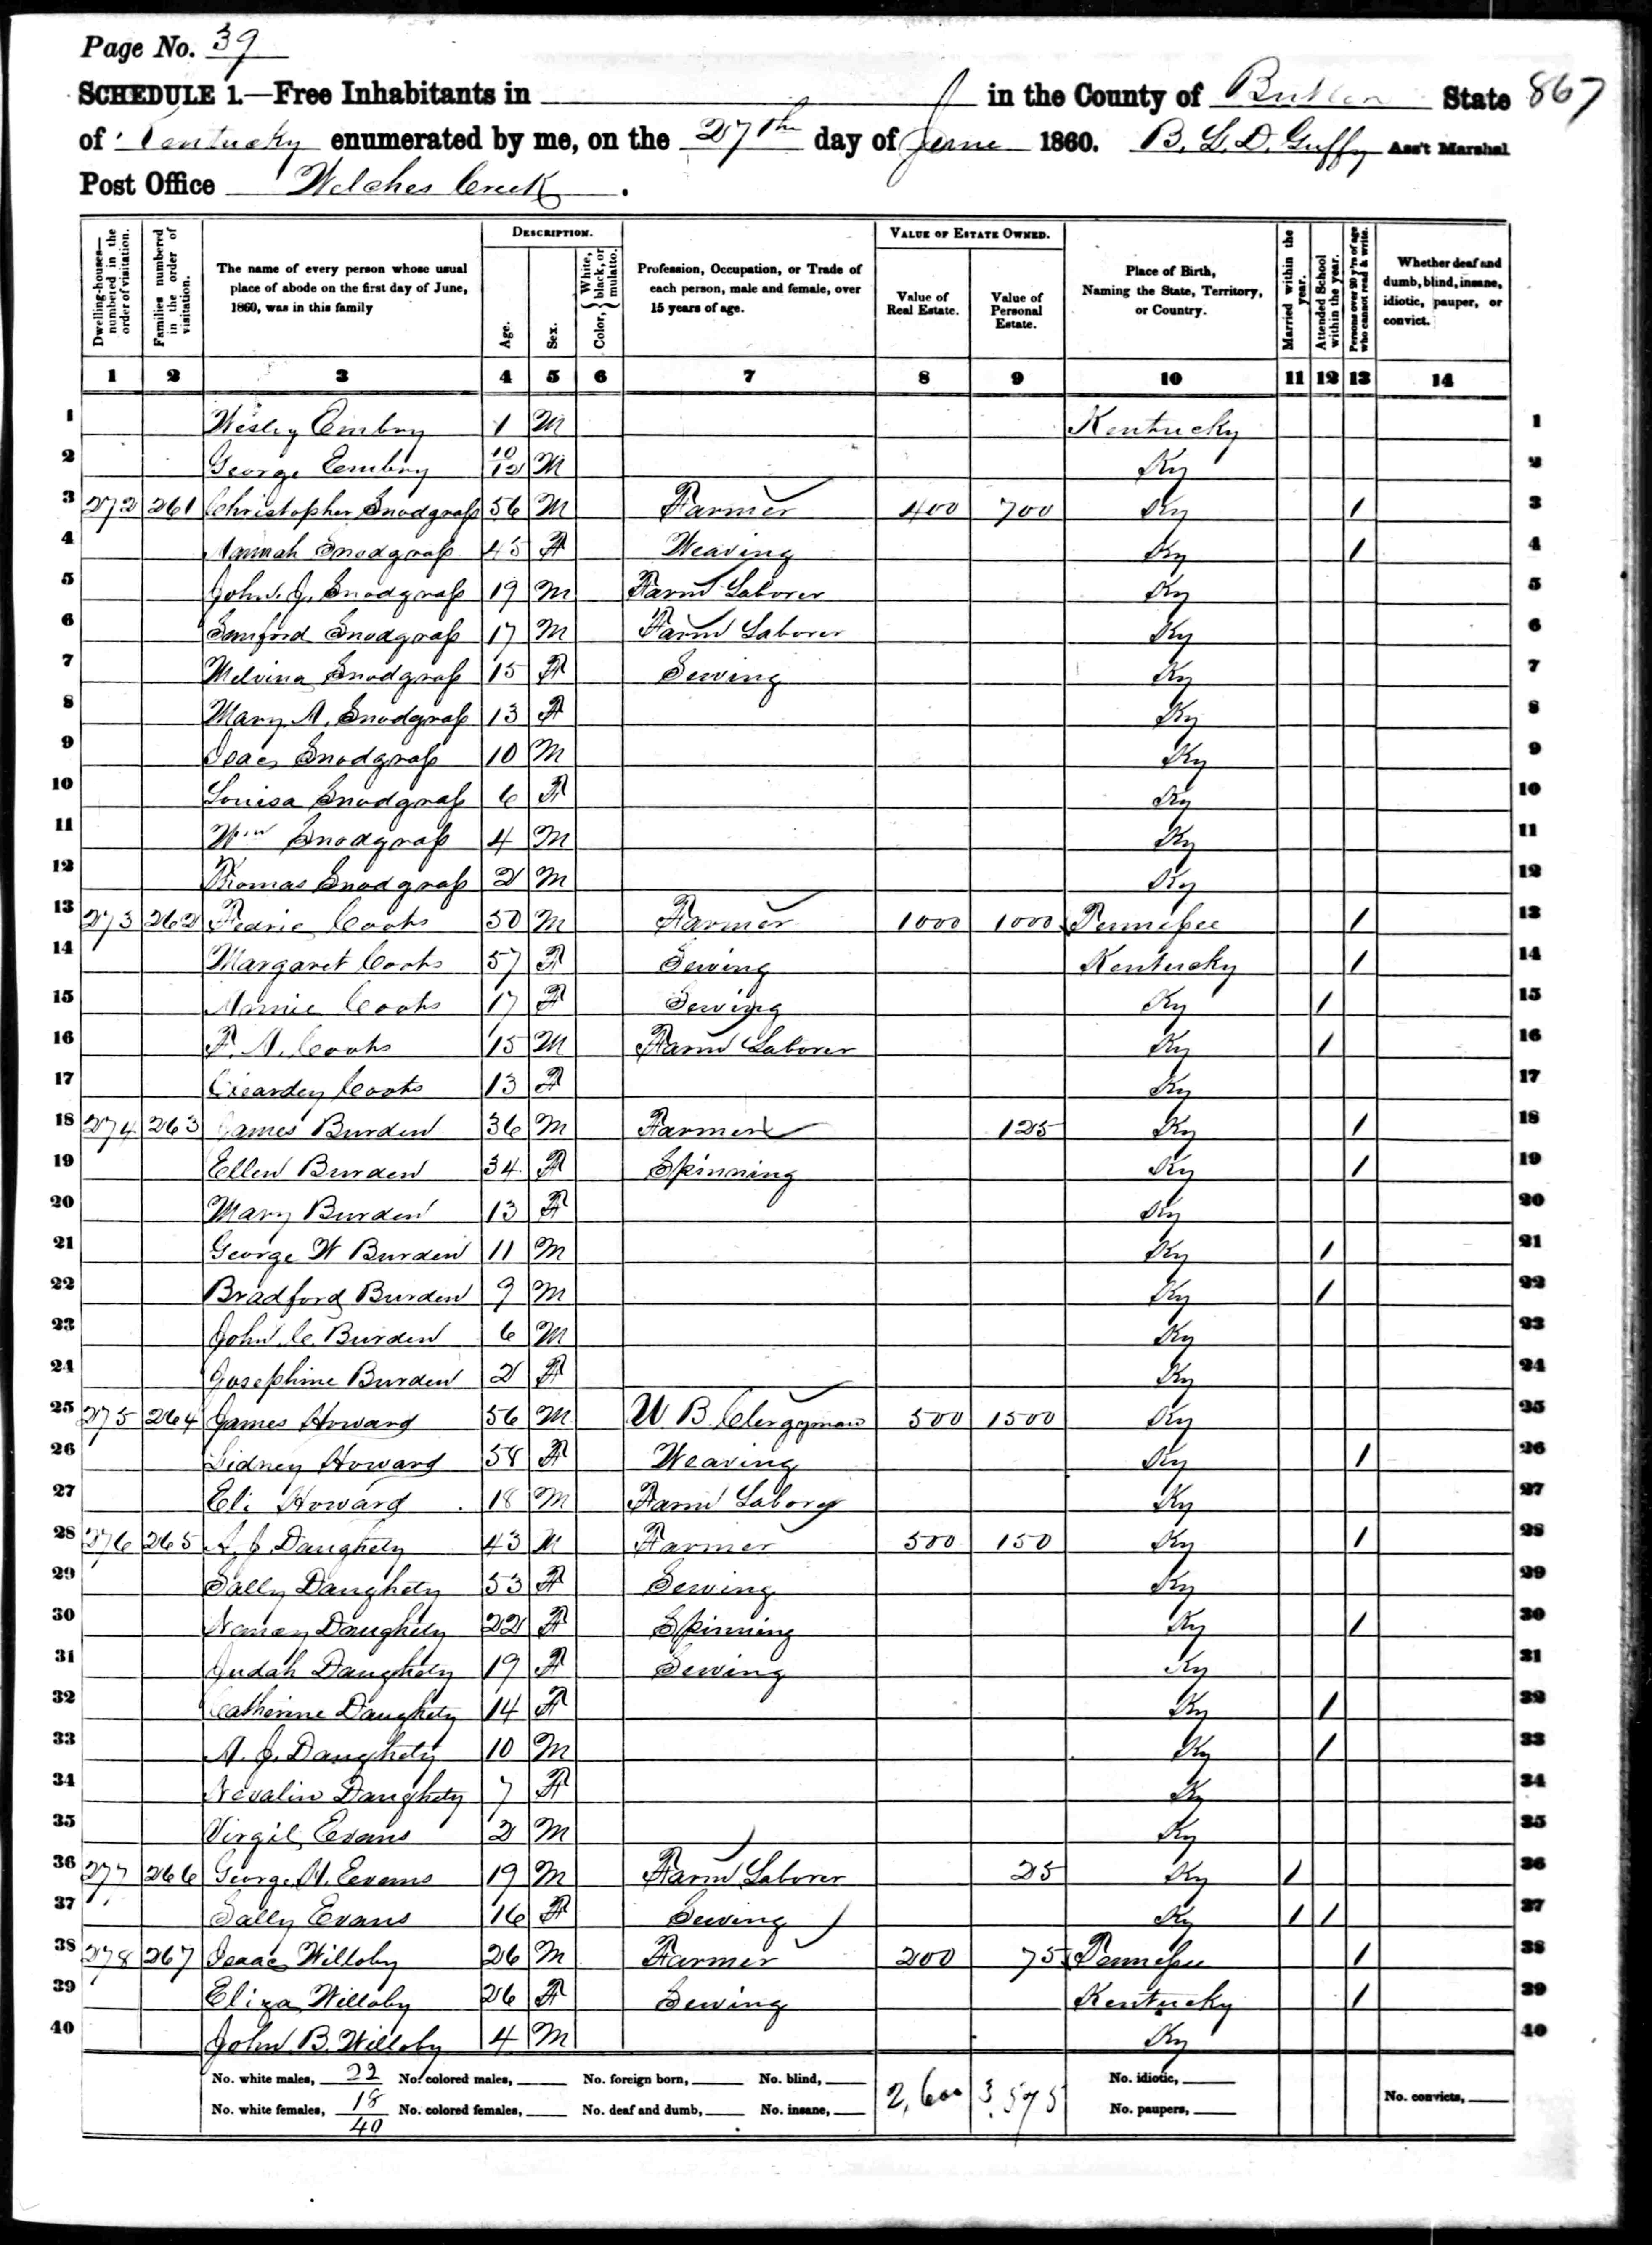 Page No. 39
SCHEDULE 1.—Free Inhabitants in in the County of Butler State 867
of Kentucky enumerated by me, on the 27th day of June 1860. B. L. D. Guffy Ass't Marshal
Post Office Welches Creek.
Dwelling-houses—numbered in the order of visitation. Families numbered in the order of visitation. The name of every person whose usual place of abode on the first day of June, 1860, was in this family DESCRIPTION. Age. Sex. Color, {White, black, or mulatto. Profession, Occupation, or Trade of each person, male and female, over 15 years of age. VALUE OF ESTATE OWNED. Value of Real Estate. Value of Personal Estate. Place of Birth, Naming the State, Territory, or Country. Married within the year. Attended School within the year. Persons over 20 y'rs of age who cannot read & write. Whether deaf and dumb, blind, insane, idiotic, pauper, or convict.
1 2 3 4 5 6 7 8 9 10 11 12 13 14
1 Wesley Embry 1 M Kentucky 1
2 George Embry 10/12 M Ky 2
3 272 261 Christopher Snodgrass 56 M Farmer 400 700 Ky / 3
4 Hannah Snodgrass 45 F Weaving Ky / 4
5 John J. Snodgrass 19 M Farm Laborer Ky 5
6 Samford Snodgrass 17 M Farm Laborer Ky 6
7 Melvina Snodgrass 15 F Sewing Ky 7
8 Mary A. Snodgrass 13 F Ky 8
9 Isaac Snodgrass 10 M Ky 9
10 Louisa Snodgrass 6 F Ky 10
11 Wm Snodgrass 4 M Ky 11
12 Thomas Snodgrass 2 M Ky 12
13 273 262 Coots 50 M Farmer 1000 1000 Tennessee / 13
14 Margaret Coots 57 F Sewing Kentucky / 14
15 Coots 17 F Sewing Ky / 15
16 Coots 15 M Farm Laborer Ky / 16
17 Coots 13 F Ky 17
18 274 263 James Burden 36 M Farmer 125 Ky / 18
19 Ellen Burden 34 F Spinning Ky / 19
20 Mary Burden 13 F Ky 20
21 George W Burden 11 M Ky / 21
22 Bradford Burden 9 M Ky / 22
23 John C. Burden 6 M Ky 23
24 Josephine Burden 2 F Ky 24
25 275 264 James Howard 56 M U B Clergyman 500 1500 Ky 25
26 Sidney Howard 58 F Weaving Ky / 26
27 Eli Howard 18 M Farm Labory Ky 27
28 276 265 A. J. Daughety 43 M Farmer 500 150 Ky / 28
29 Sally Daughety 53 F Sewing Ky 29
30 Nancy Daughety 22 F Spinning Ky / 30
31 Judah Daughety 19 F Sewing Ky 31
32 Catherine Daughety 14 F Ky / 32
33 A. J. Daughety 10 M Ky / 33
34 Nevalin Daughety 7 F Ky 34
35 Virgil Evans 2 M Ky 35
36 277 266 George Evans 19 M Farm Laborer 25 Ky / 36
37 Sally Evans 16 F Sewing Ky / / 37
38 278 267 Isaac Willoby 26 M Farmer 200 75 Tennessee / 38
39 Eliza Willoby 26 F Sewing Kentucky / 39
40 John B. Willoby 4 M Ky 40
No. white males, 22 No. colored males, No. foreign born, No. blind, 2,600 3,575 No. idiotic,
No. white females, 18 No. colored females, No. deaf and dumb, No. insane, No. paupers, No. convicts,
40